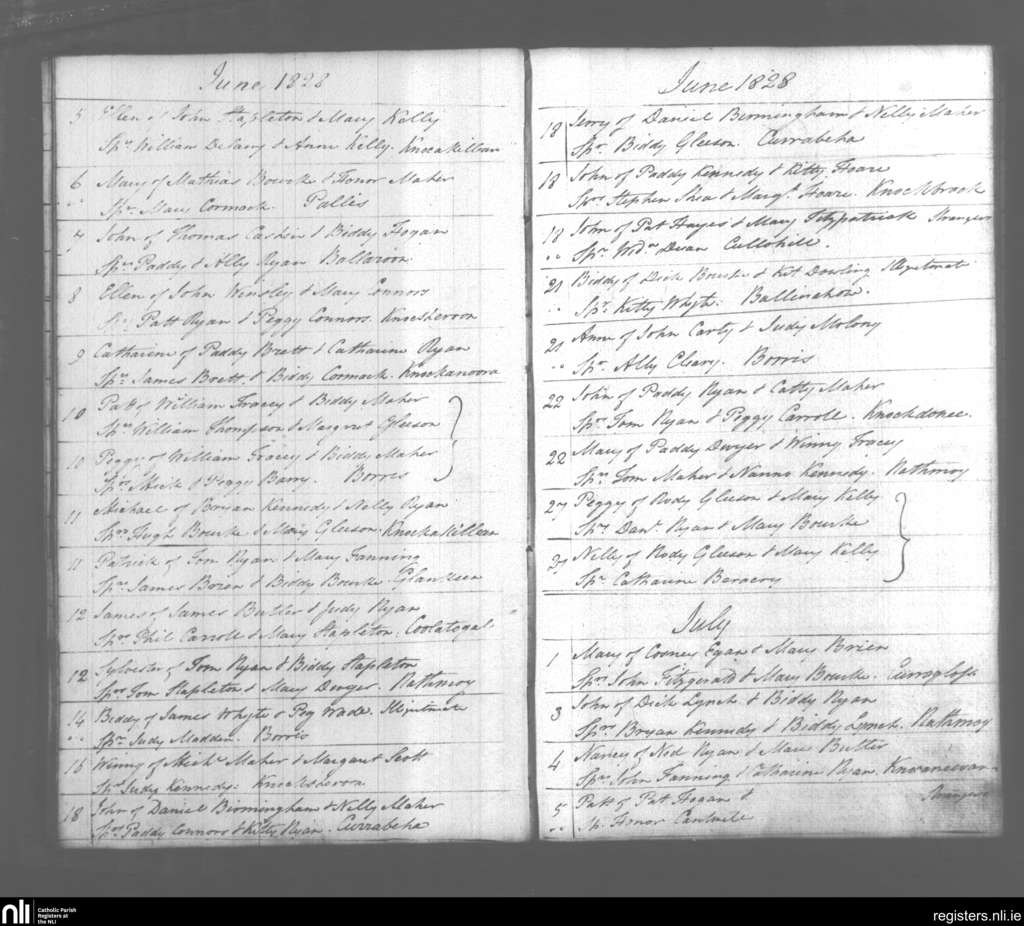 June 1828
5 Ellen of John Stapleton & Mary Kelly
Sprs William Delany & Anne Kelly. Knockakillian
6 Mary of Mathias Bourke & Honor Maher
" Spr. Mary Cormack. Pallis
7 John of Thomas Cashin & Biddy Hogan
Sprs Paddy & Ally Ryan Ballaroon
8 Ellen of John Winsley & Mary Connors
Sprs Patt Ryan & Peggy Connors. Knocsheroon
9 Catharine of Paddy Brett & Catharine Ryan
Sprs James Brett & Biddy Cormack. Knockanoora
10 Patt of William Tracey & Biddy Maher
Sprs William Thompson & Margret Gleeson
10 Peggy of William Tracey & Biddy Maher
Sprs Mick & Peggy Barry. Borris
11 Michael of Bryan Kennedy & Nelly Ryan
Sprs Hugh Bourke & Mary Gleeson. Knockakillean
11 Patrick of Tom Ryan & Mary Fanning
Sprs James Brien & Biddy Bourke. Glankeen
12 James of James Butler & Judy Ryan
Sprs Phil Carroll & Mary Stapleton. Coolatogal
12 Sylvester of Tom Ryan & Biddy Stapleton
Sprs Tom Stapleton & Mary Dwyer. Rathmoy
14 Biddy of James Whyte & Peg Wade. Illigitimate
" Spr. Judy Madden. Borris
16 Winny of Michl Maher & Margaret Scott
Spr Judy Kennedy. Knocksheroon
18 John of Daniel Birmingham & Nelly Maher
Sprs Paddy Connors & Kitty Ryan. Currabeha
June 1828
18 Jerry of Daniel Birmingham & Nelly Maher
Spr. Biddy Gleeson. Currabeha
18 John of Paddy Kennedy & Kitty Hoare
Sprs Stephen Shea & Margt. Hoare. Knockbrack
18 John of Pat Hayes & Mary Fitzpatrick Strangers
" Spr. Wdw Dwan Cullohill.
21 Biddy of Dick Bourke & Kit Dowling Illegitimate
" Spr. Kitty Whyte. Ballinahow.
21 Anne of John Carty & Judy Molony
" Spr. Ally Cleary. Borris
22 John of Paddy Ryan & Catty Maher
Sprs Tom Ryan & Peggy Carroll. Knockdonee.
22 Mary of Paddy Dwyer & Winny Tracey
Sprs Tom Maher & Nanno Kennedy. Rathmoy
27 Peggy of Rody Gleeson & Mary Kelly
Sprs Danl. Ryan & Mary Bourke
27 Nelly of Rody Gleeson & Mary Kelly
Spr Catharine
July
1 Mary of Cooney Egan & Mary Brien
Sprs John Fitzgerald & Mary Bourke.
3 John of Dick Lynch & Biddy Ryan
Sprs Bryan Kennedy & Biddy Lynch. Rathmoy
4 Nancy of Ned Ryan & Mary Butler
Sprs John Fanning & Catharine Ryan.
5 Patt of Pat Hogan & Strangers
" Sp. Honor Cantwell
nli
Catholic Parish
Registers at
the NLI
registers.nli.ie